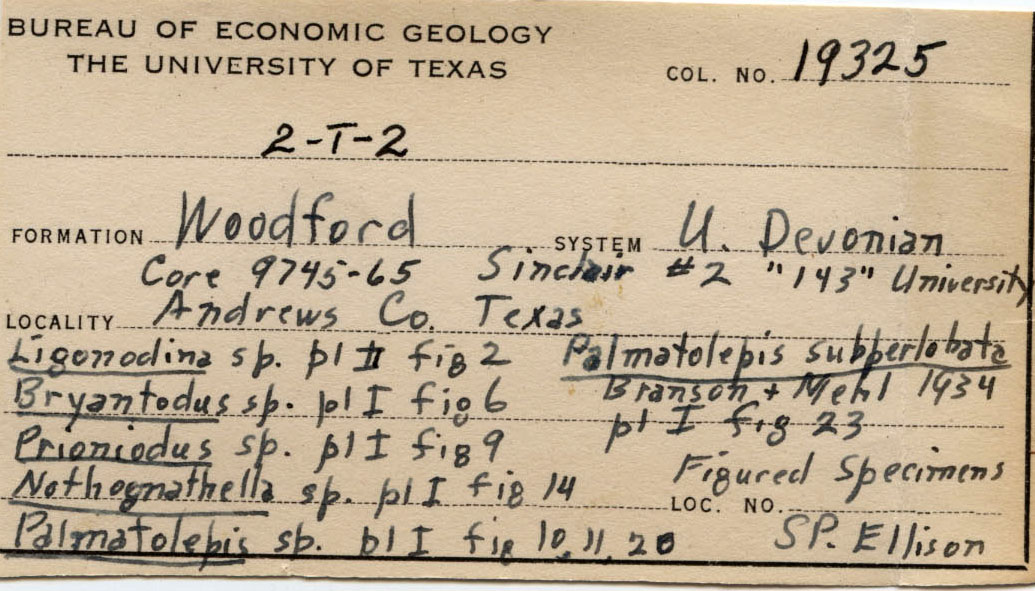 BUREAU OF ECONOMIC GEOLOGY
THE UNIVERSITY OF TEXAS
COL. NO. 19325
2-T-2
FORMATION Woodford SYSTEM U. Devonian
Core 9745-65 Sinclair #2 "143" University
LOCALITY Andrews Co. Texas
Ligonodina sp. pl II fig 2
Bryantodus sp. pl I fig 6
Prioniodus sp. pl I fig 9
Nothognathella sp. pl I fig 14
Palmatolepis sp. pl I fig 10, 11, 20
Palmatolepis subperlobata
Branson + Mehl 1934
pl I fig 23
Figured Specimens
LOC. NO.
SP. Ellison